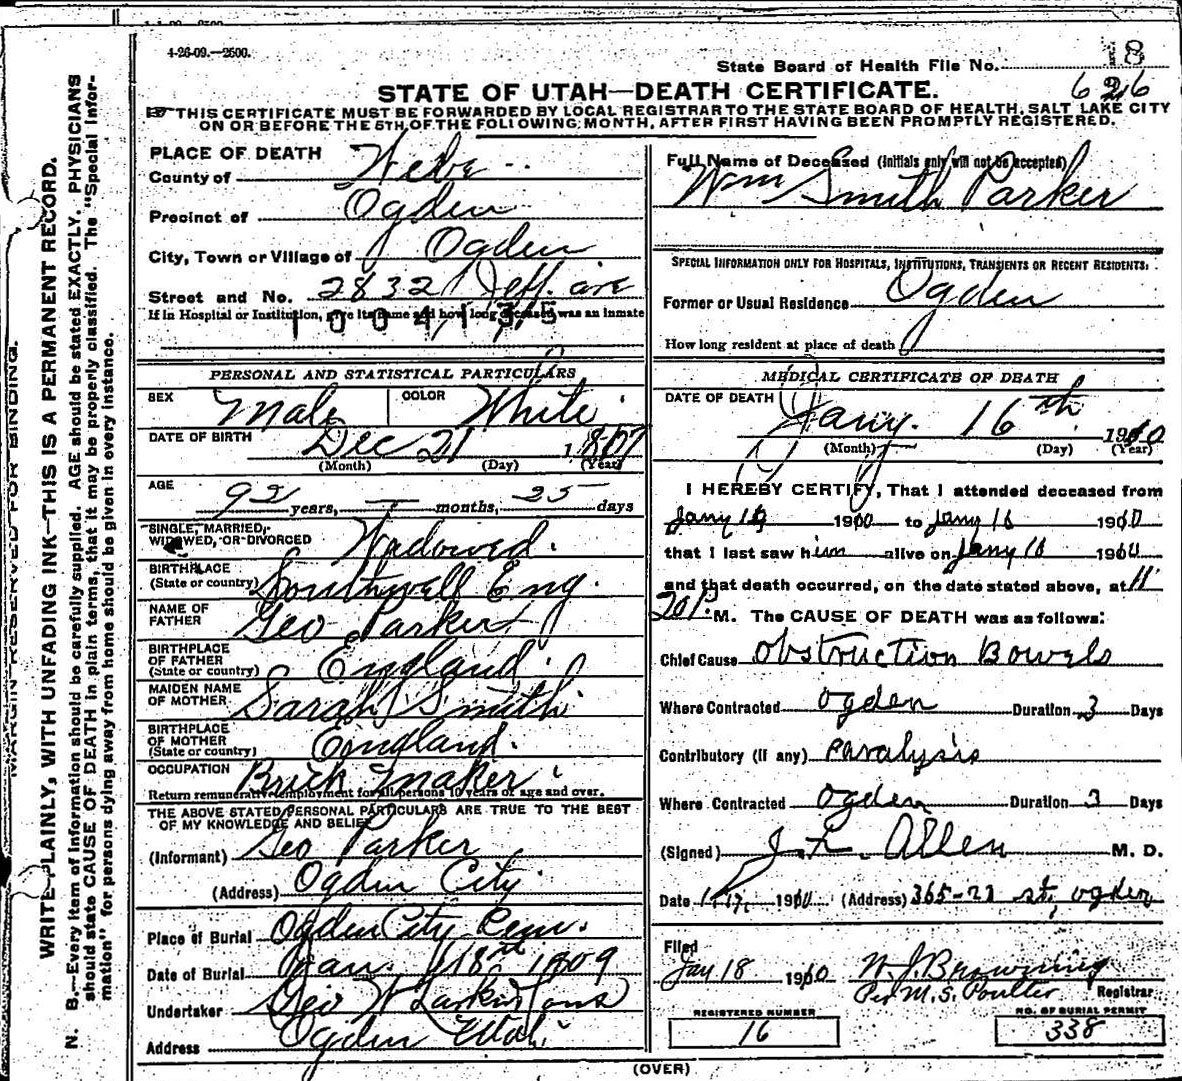 4-26-09.—2500.
18
State Board of Health File No.
626
STATE OF UTAH—DEATH CERTIFICATE.
THIS CERTIFICATE MUST BE FORWARDED BY LOCAL REGISTRAR TO THE STATE BOARD OF HEALTH, SALT LAKE CITY
ON OR BEFORE THE 5TH OF THE FOLLOWING MONTH, AFTER FIRST HAVING BEEN PROMPTLY REGISTERED.
MARGIN RESERVED FOR BINDING.
WRITE PLAINLY, WITH UNFADING INK—THIS IS A PERMANENT RECORD.
N. B.—Every item of information should be carefully supplied. AGE should be stated EXACTLY. PHYSICIANS
should state CAUSE OF DEATH in plain terms, that it may be properly classified. The "Special Infor-
mation" for persons dying away from home should be given in every instance.
PLACE OF DEATH
County of Weber
Precinct of Ogden
City, Town or Village of Ogden
Street and No. 2832 Jeff. ave
If in Hospital or Institution, give its name and how long deceased was an inmate
1004135
PERSONAL AND STATISTICAL PARTICULARS
SEX Male COLOR White
DATE OF BIRTH Dec 21 1817
(Month) (Day) (Year)
AGE 92 years, — months, 25 days
SINGLE, MARRIED,
WIDOWED, OR DIVORCED Widowed.
BIRTHPLACE
(State or country) Southwell Eng.
NAME OF
FATHER Geo Parker
BIRTHPLACE
OF FATHER
(State or country) England.
MAIDEN NAME
OF MOTHER Sarah Smith
BIRTHPLACE
OF MOTHER
(State or country) England.
OCCUPATION Brick Maker
Return remunerative employment for all persons 10 years of age and over.
THE ABOVE STATED PERSONAL PARTICULARS ARE TRUE TO THE BEST
OF MY KNOWLEDGE AND BELIEF
(Informant) Geo Parker
(Address) Ogden City
Place of Burial Ogden City Cem.
Date of Burial Jan. 18 1909
Undertaker Geo W Larkin Sons
Address Ogden Utah
Full Name of Deceased (Initials only will not be accepted)
Wm Smith Parker
SPECIAL INFORMATION ONLY FOR HOSPITALS, INSTITUTIONS, TRANSIENTS OR RECENT RESIDENTS:
Former or Usual Residence Ogden
How long resident at place of death
MEDICAL CERTIFICATE OF DEATH
DATE OF DEATH
Jany. 16th 1910
(Month) (Day) (Year)
I HEREBY CERTIFY, That I attended deceased from
Jany 1910 to Jany 16 1910
that I last saw him alive on Jany 16 1910
and that death occurred, on the date stated above, at 11
20 P. M. The CAUSE OF DEATH was as follows:
Chief Cause Obstruction Bowels
Where Contracted Ogden Duration 3 Days
Contributory (if any) Paralysis
Where Contracted Ogden Duration 3 Days
(Signed) M. D.
Date 1-17, 1910 (Address) 365-23 st, Ogden
Filed
Jan 18 1910 W. J. Browning
Per M. S. Poulter Registrar
REGISTERED NUMBER
16
NO. OF BURIAL PERMIT
338
(OVER)